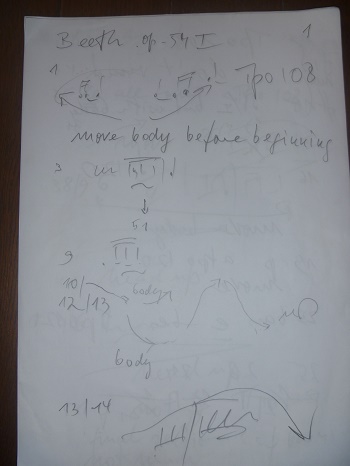 Beeth. op. 54 I 1
1
Tpo 108
move body before beginning
3
51
9
10/ body
12/13
body
13/14